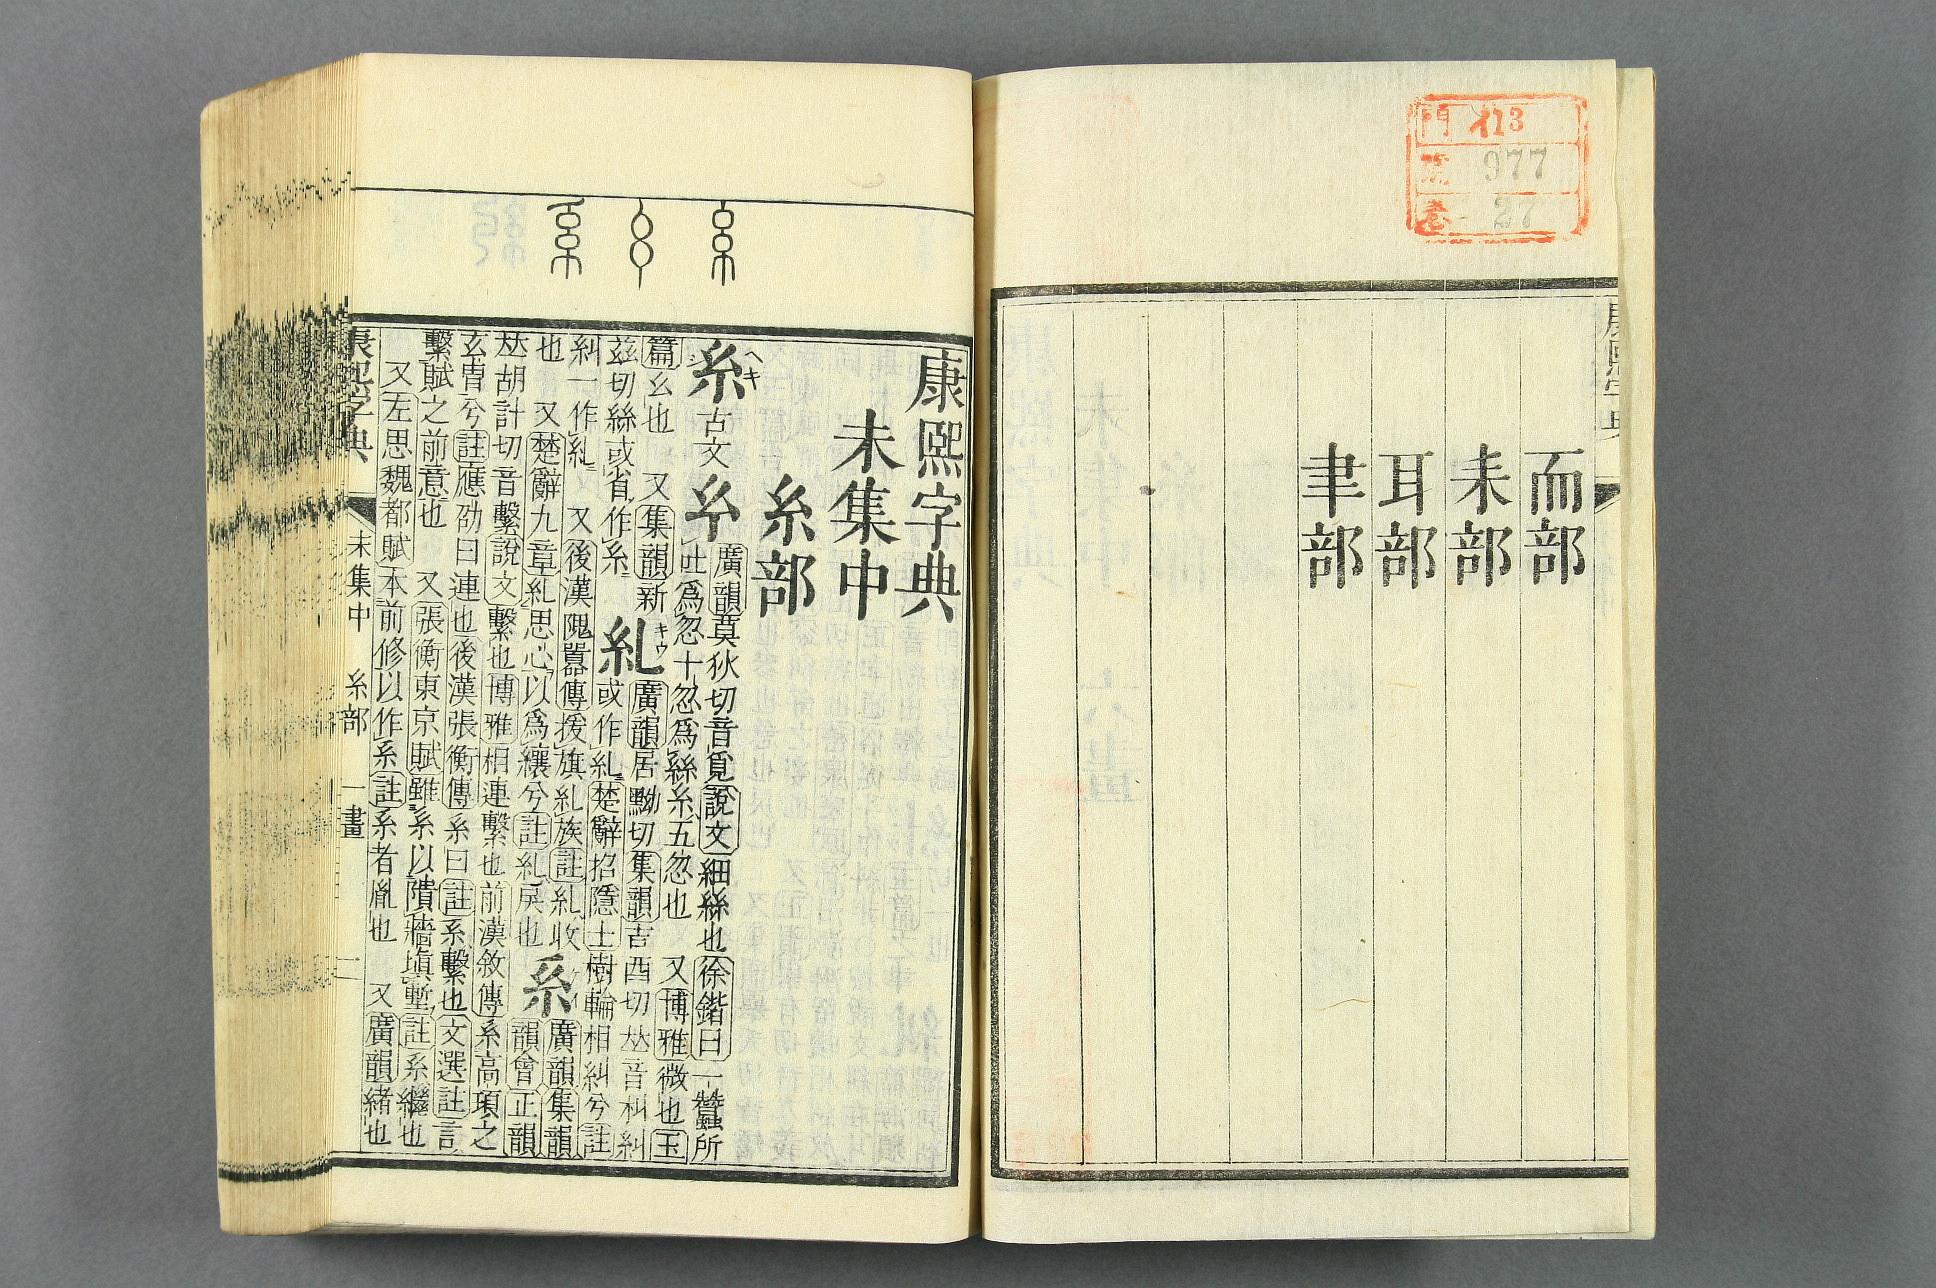 門 113
977
27
康熙字典
而部
耒部
耳部
聿部
康熙字典
未集中
糸部
糸 ヘキ 古文 糸 廣韻莫狄切音覓說文細絲也徐鍇曰一蠶所
吐爲忽十忽爲絲糸五忽也 又博雅微也玉
篇幺也 又集韻新
兹切絲或省作糸
糺 キウ 廣韻居黝切集韻吉酉切𠀤音糾糾
或作糺楚辭招隱士樹輪相糾兮註
糾一作糺 又後漢隗囂傳援旗糺族註糺收
也 又楚辭九章糺思心以爲纕兮註糺戾也
系 ケイ 廣韻集韻
韻會正韻
𠀤胡計切音繫說文繫也博雅相連繫也前漢敘傳系高頊之
玄胄兮註應劭曰連也後漢張衡傳系曰註系繫也文選註言
繫賦之前意也 又張衡東京賦雖系以隤牆塡塹註系繼也
又左思魏都賦本前修以作系註系者胤也 又廣韻緒也
康熙字典 未集中 糸部 一畫 二